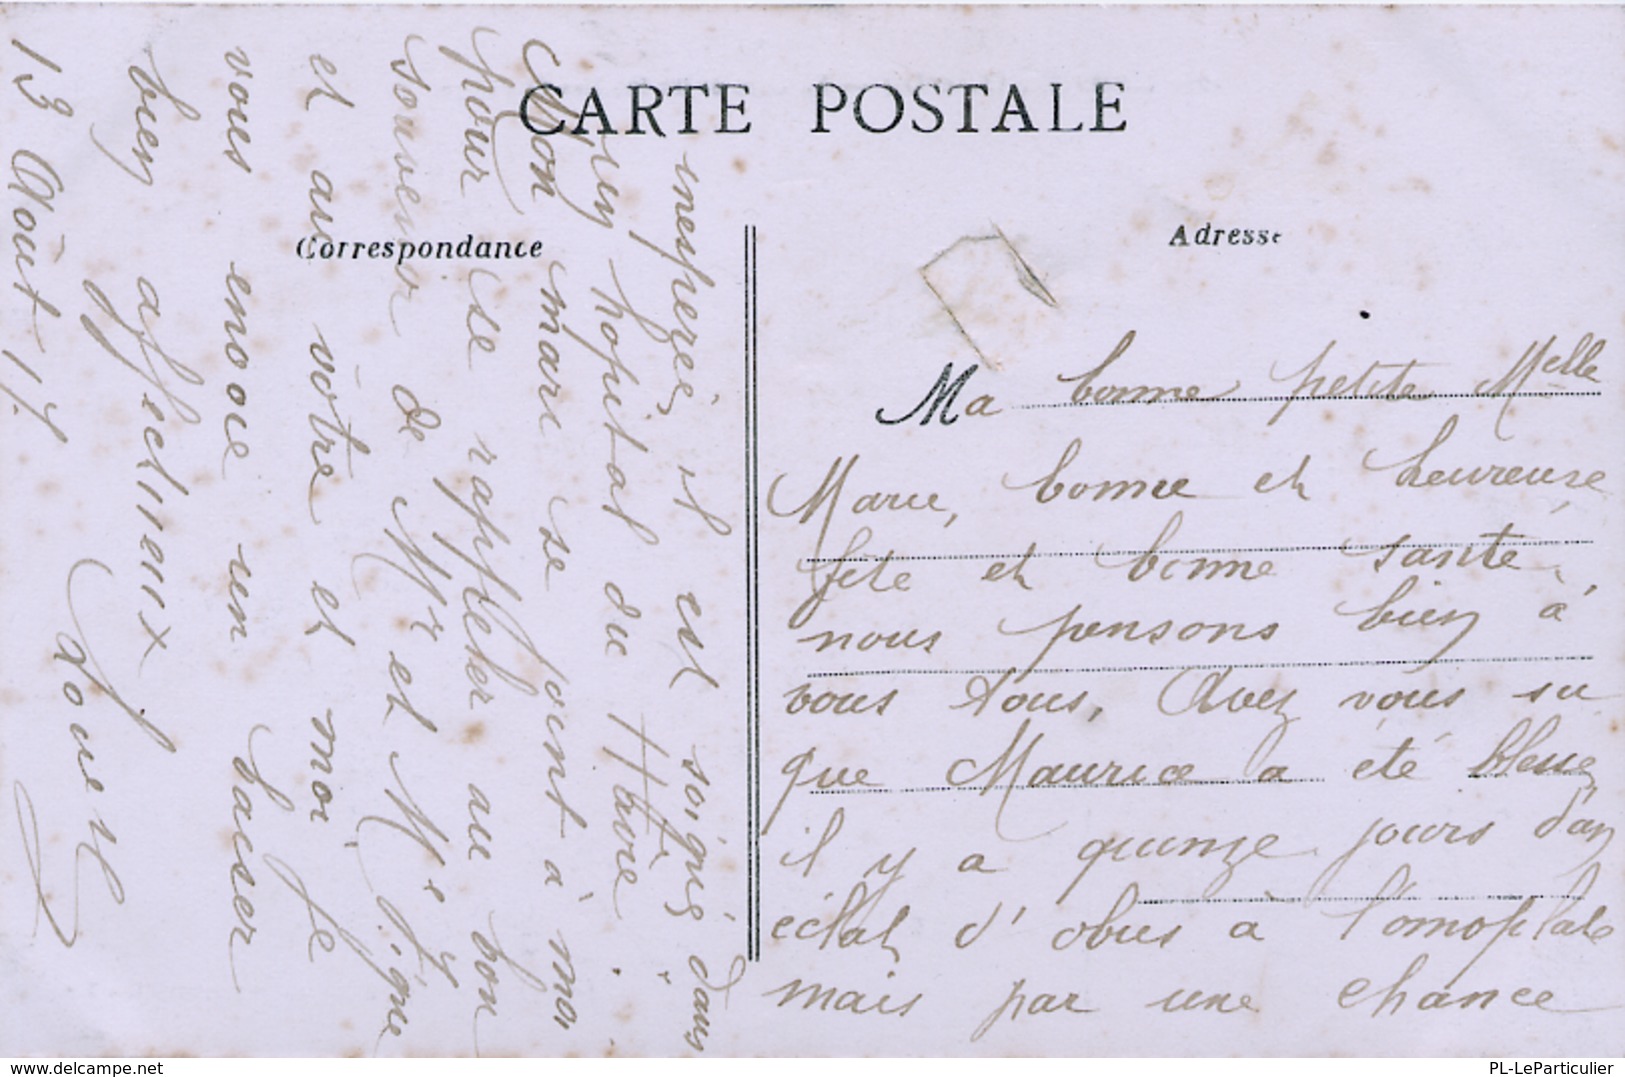 CARTE POSTALE
Correspondance
Adresse
Ma bonne petite Melle
Marie, bonne et heureuse
fête et bonne santé,
nous pensons bien à
vous tous, Avez vous su
que Maurice a été blessé
il y a quinze jours d'un
éclat d'obus à l'omoplate
mais par une chance
inesperée, il est soigné dans
un hopital du Hâvre.
Mon mari se joint à moi
pour se rappeler au bon
souvenir de Mr et Me
et au vôtre et moi, je
vous envoie un baiser
bien affectueux
13 Août 17.
delcampe.net
PL-LeParticulier